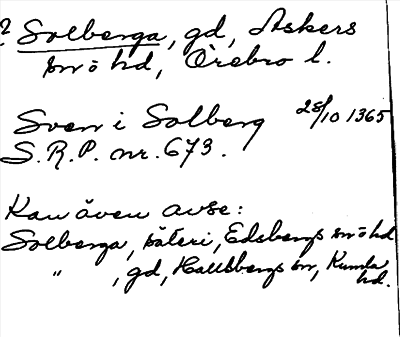 ? Solberga, gd, Askers
sn o hd, Örebro l.
Sven i Solberg 28/10 1365
S.R.P. nr. 673.
Kan även avse:
Solberga, säteri, Edsbergs sn o hd
" , gd, Hallsbergs sn, Kumla
hd.